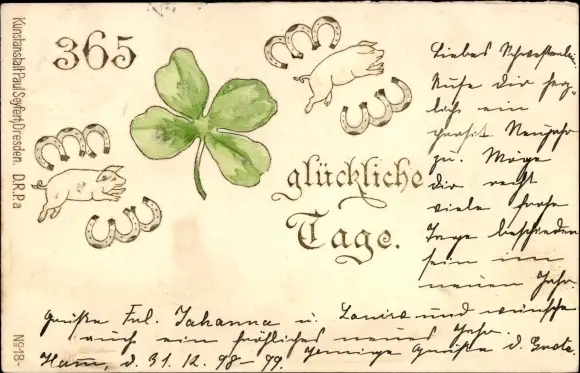 Kunstanstalt Paul Seyfert, Dresden. D.R.P.a
No 18-
365
glückliche
Tage.
Liebes Schwesterlein
Rufe dir herz-
lich ein
prosit Neujahr
zu. Möge
dir recht
viele frohe
Tage beschieden
sein im
neuen Jahr.
Grüße Frl. Johanna u. Louise und wünsche
auch ein fröhliches neues Jahr.
Hamm, d. 31. 12. 98-99. Innige Grüße d. Grete.